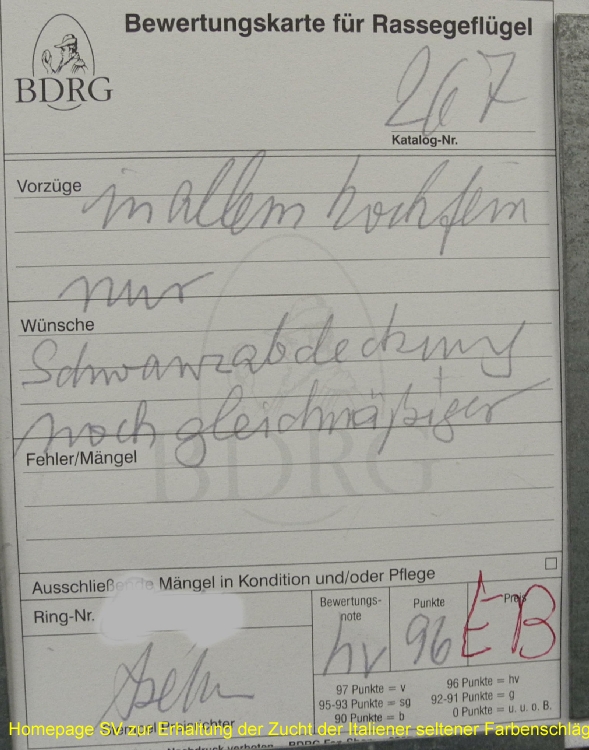 Bewertungskarte für Rassegeflügel
BDRG
267
Katalog-Nr.
Vorzüge
in allem hochfein
nur
Wünsche
Schwanzabdeckung
noch gleichmäßiger
BDRG
Fehler/Mängel
Ausschließende Mängel in Kondition und/oder Pflege
Ring-Nr.
Bewertungs-
note
hv
Punkte
96
Preis
E B
97 Punkte = v
96 Punkte = hv
95-93 Punkte = sg
92-91 Punkte = g
90 Punkte = b
0 Punkte = u. u. o. B.
Homepage SV zur Erhaltung der Zucht der Italiener seltener Farbenschläg